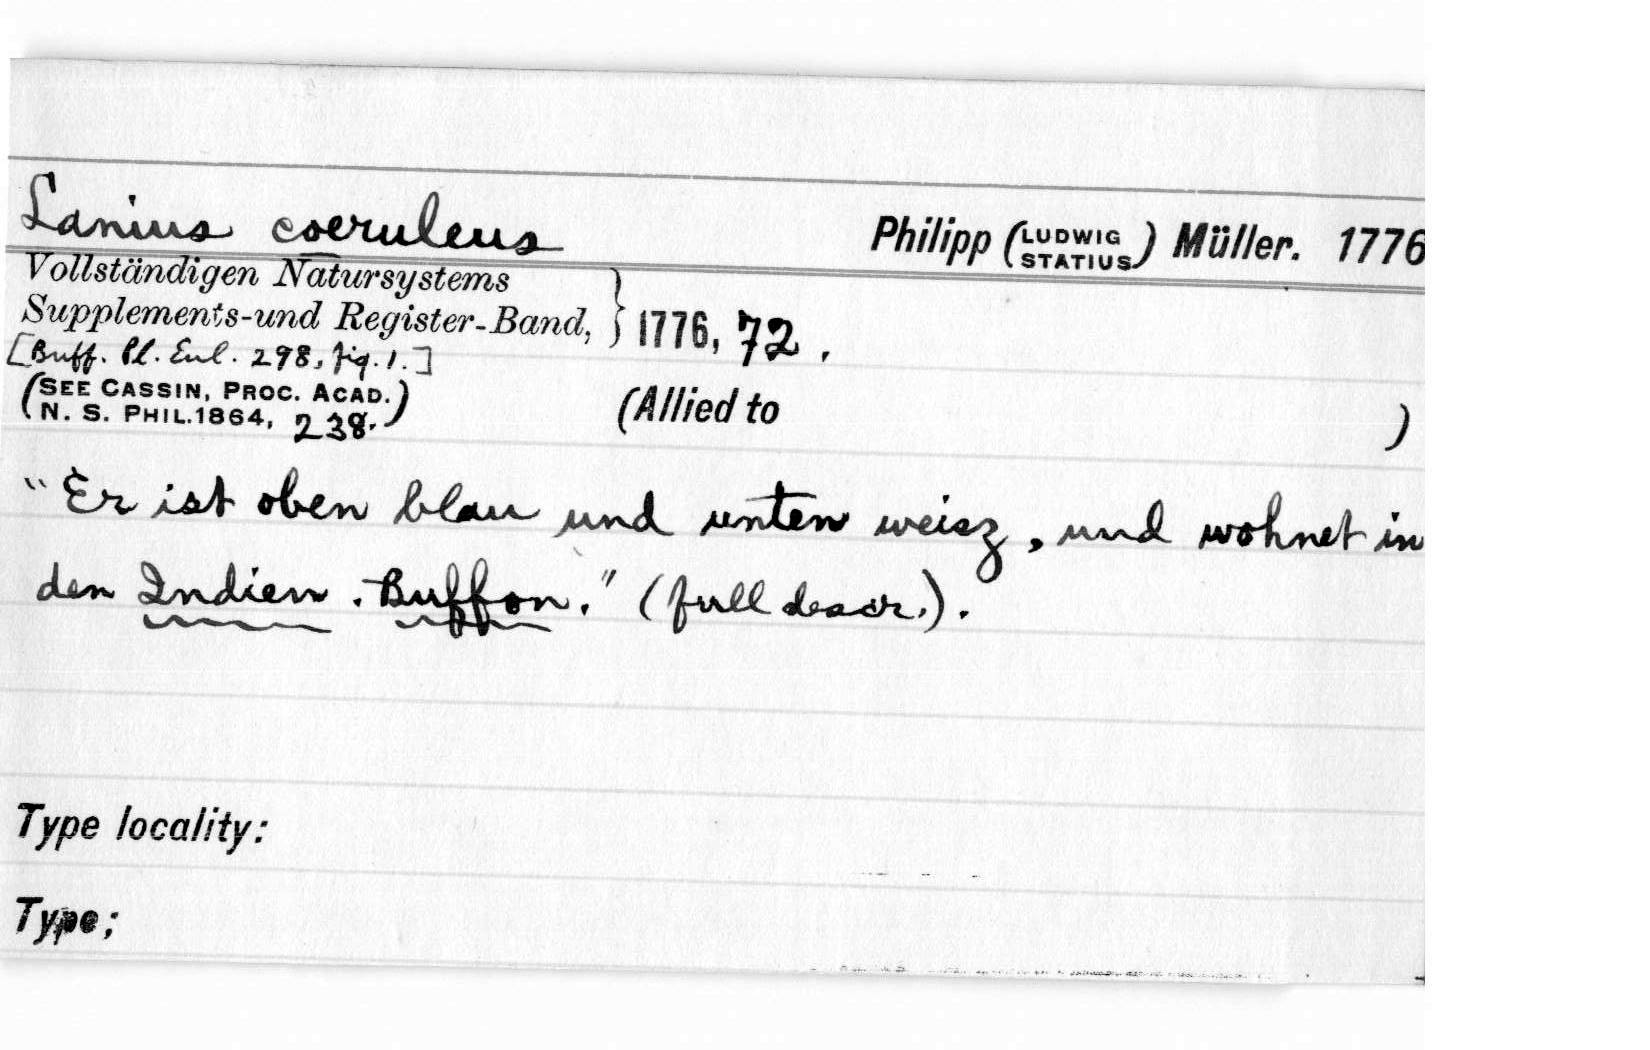 Lanius coeruleus Philipp (LUDWIG STATIUS) Müller. 1776
Vollständigen Natursystems
Supplements-und Register-Band, } 1776, 72.
[Buff. Pl. Enl. 298, fig. 1.]
(SEE CASSIN, PROC. ACAD.
N. S. PHIL. 1864, 238.) (Allied to )
"Er ist oben blau und unten weisz, und wohnet in
den Indien. Buffon." (full descr.).
Type locality:
Type;